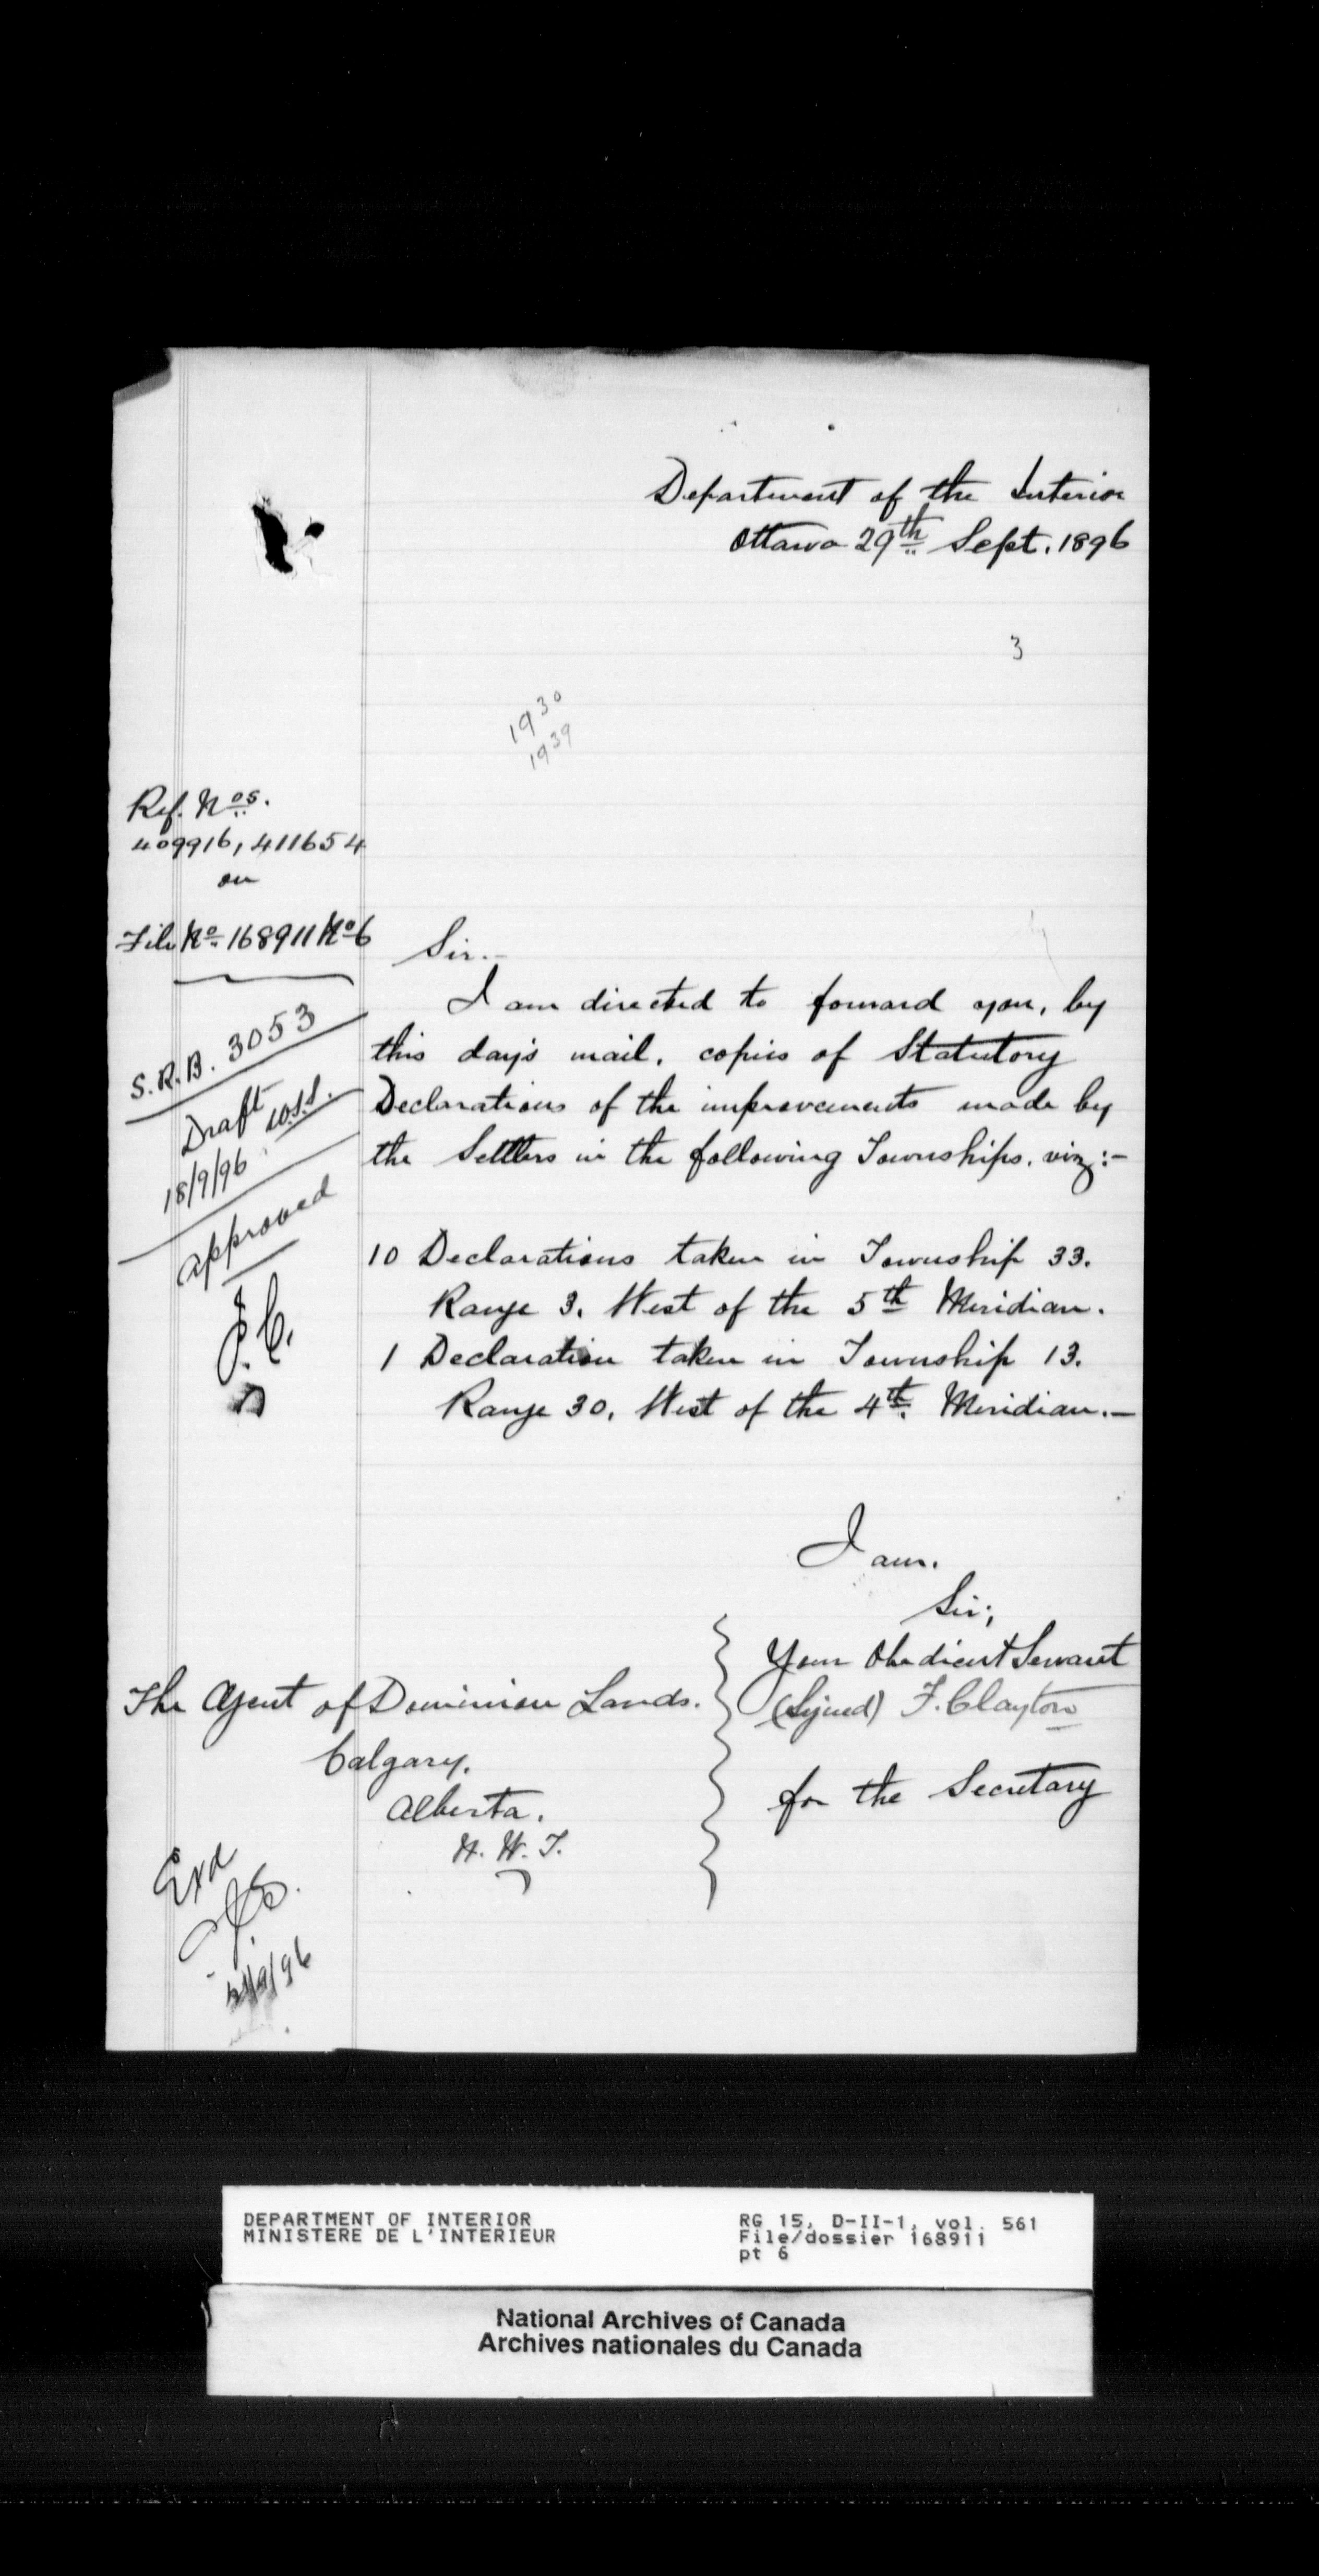 Department of the Interior
Ottawa 29th Sept. 1896
3
1930
1939
Ref. Nos.
409916, 411654
on
File No. 168911 No 6
S.R.B. 3053
Draft
18/9/96
approved
J.C.
Sir.-
I am directed to forward you, by
this day's mail, copies of Statutory
Declarations of the improvements made by
the Settlers in the following Townships, viz:-
10 Declarations taken in Township 33.
Range 3. West of the 5th Meridian.
1 Declaration taken in Township 13.
Range 30, West of the 4th. Meridian.-
I am.
Sir;
Your Obedient Servant
(Signed) F. Clayton
for the Secretary
The Agent of Dominion Lands.
Calgary.
Alberta.
N. W. T.
Exd
DEPARTMENT OF INTERIOR
MINISTERE DE L'INTERIEUR
RG 15, D-II-1, vol. 561
File/dossier 168911
pt 6
National Archives of Canada
Archives nationales du Canada